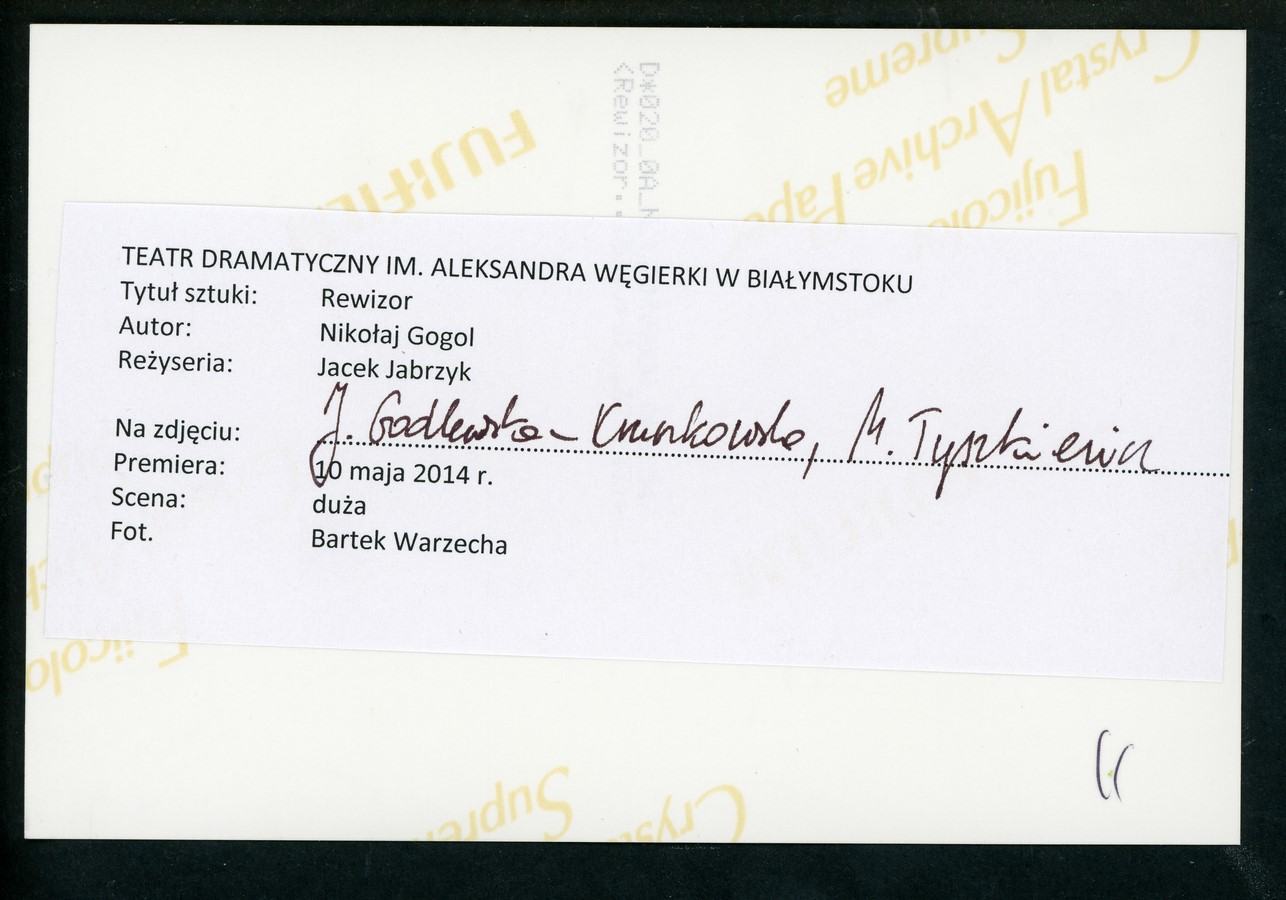 D*020_0A_
<Rewizor..
FUJIFI
Crystal Archive Pape
Supreme
Fujicolo
TEATR DRAMATYCZNY IM. ALEKSANDRA WĘGIERKI W BIAŁYMSTOKU
Tytuł sztuki: Rewizor
Autor: Nikołaj Gogol
Reżyseria: Jacek Jabrzyk
Na zdjęciu: J. Godlewska-Krunkowska, M. Tyszkiewicz
Premiera: 10 maja 2014 r.
Scena: duża
Fot. Bartek Warzecha
Fujicolo
Suprem
Crysta